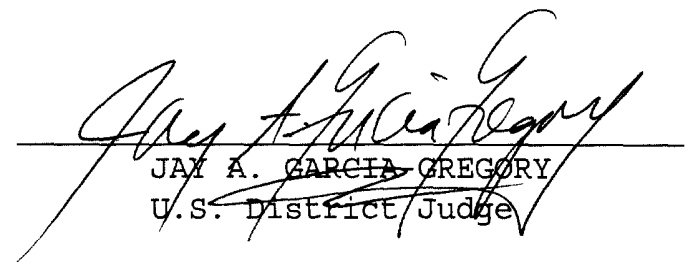 Jay A. Garcia Gregory
JAY A. GARCIA GREGORY
U.S. District Judge